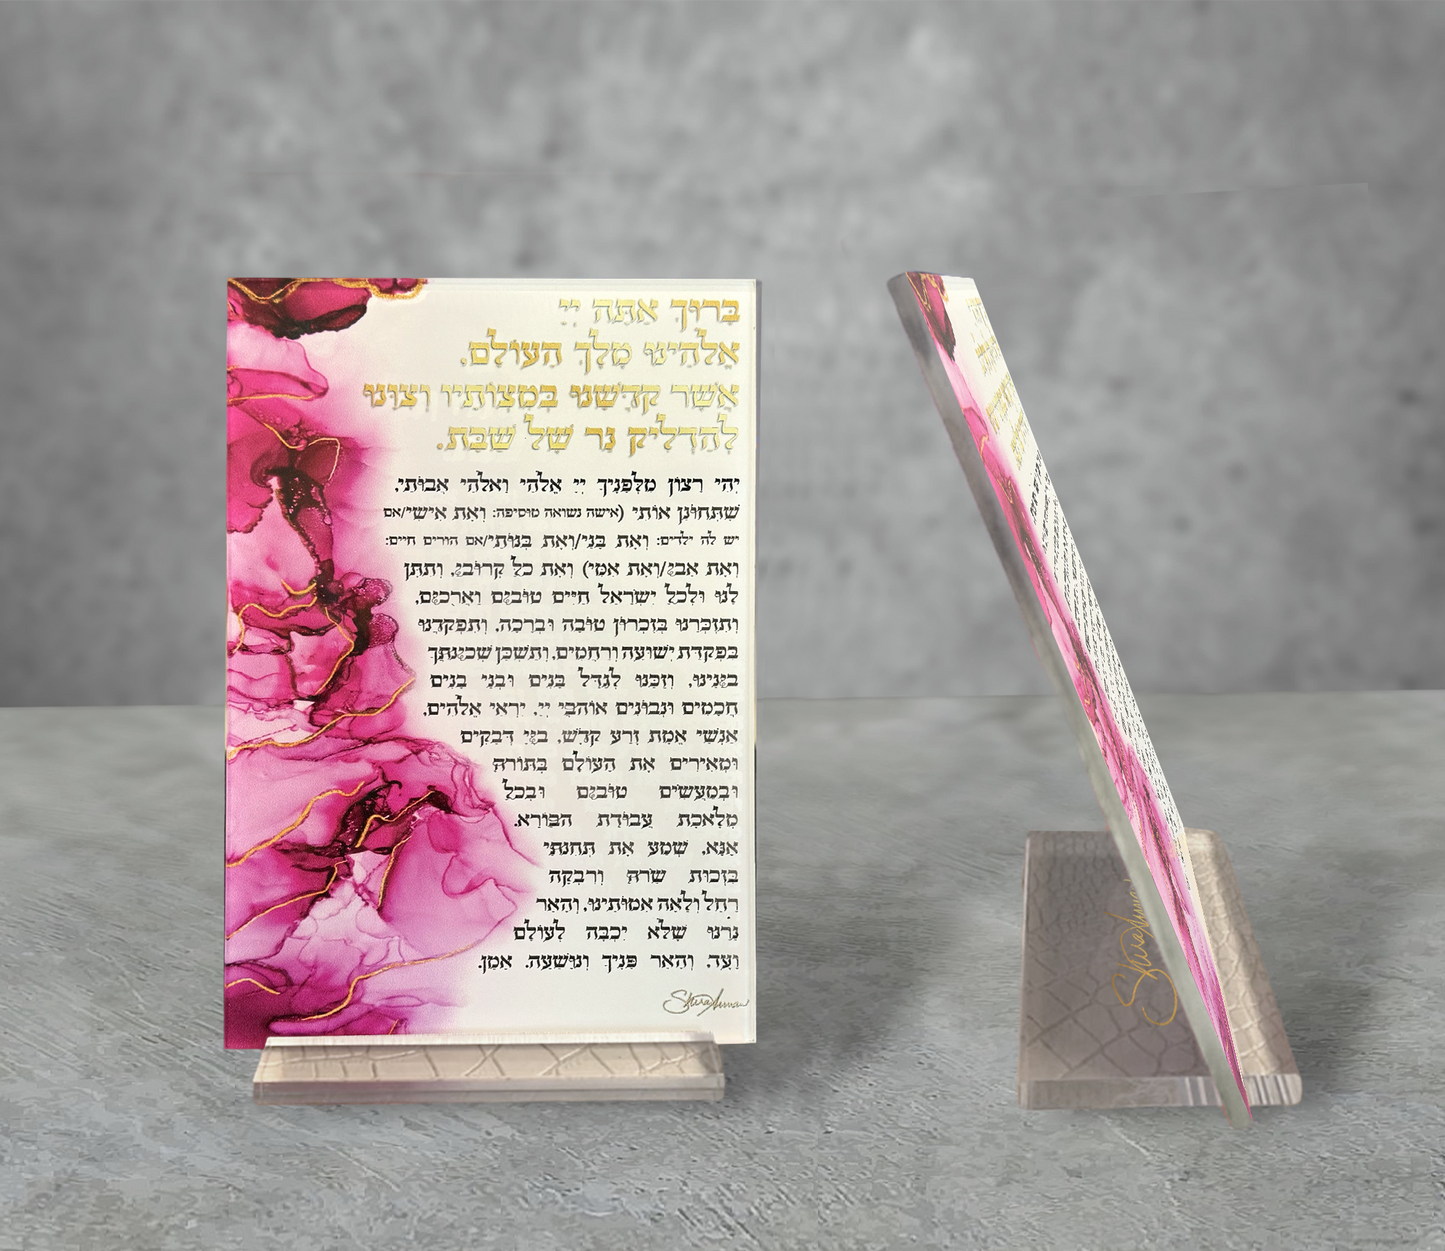 בָּרוּךְ אַתָּה יְיָ
אֱלֹהֵינוּ מֶלֶךְ הָעוֹלָם.
אֲשֶׁר קִדְּשָׁנוּ בְּמִצְוֹתָיו וְצִוָּנוּ
לְהַדְלִיק נֵר שֶׁל שַׁבָּת.
יְהִי רָצוֹן מִלְּפָנֶיךָ יְיָ אֱלֹהַי וֵאלֹהֵי אֲבוֹתַי,
שֶׁתְּחוֹנֵן אוֹתִי (אישה נשואה מוסיפה: וְאֶת אִישִׁי/אם
יש לה ילדים: וְאֶת בָּנַי/וְאֶת בְּנוֹתַי/אם הורים חיים:
וְאֶת אָבִי/וְאֶת אִמִּי) וְאֶת כָּל קְרוֹבַי, וְתִתֵּן
לָנוּ וּלְכָל יִשְׂרָאֵל חַיִּים טוֹבִים וַאֲרֻכִּים,
וְתִזְכְּרֵנוּ בְּזִכְרוֹן טוֹבָה וּבְרָכָה, וְתִפְקְדֵנוּ
בִּפְקֻדַּת יְשׁוּעָה וְרַחֲמִים, וְתַשְׁכֵּן שְׁכִינָתְךָ
בֵּינֵינוּ, וְזַכֵּנוּ לְגַדֵּל בָּנִים וּבְנֵי בָנִים
חֲכָמִים וּנְבוֹנִים אוֹהֲבֵי יְיָ, יִרְאֵי אֱלֹהִים,
אַנְשֵׁי אֱמֶת זֶרַע קֹדֶשׁ, בַּייָ דְּבֵקִים
וּמְאִירִים אֶת הָעוֹלָם בַּתּוֹרָה
וּבְמַעֲשִׂים טוֹבִים וּבְכָל
מְלֶאכֶת עֲבוֹדַת הַבּוֹרֵא.
אָנָּא, שְׁמַע אֶת תְּחִנָּתִי
בִּזְכוּת שָׂרָה וְרִבְקָה
רָחֵל וְלֵאָה אִמּוֹתֵינוּ, וְהָאֵר
נֵרֵנוּ שֶׁלֹּא יִכְבֶּה לְעוֹלָם
וָעֶד, וְהָאֵר פָּנֶיךָ וְנִוָּשֵׁעָה. אָמֵן.